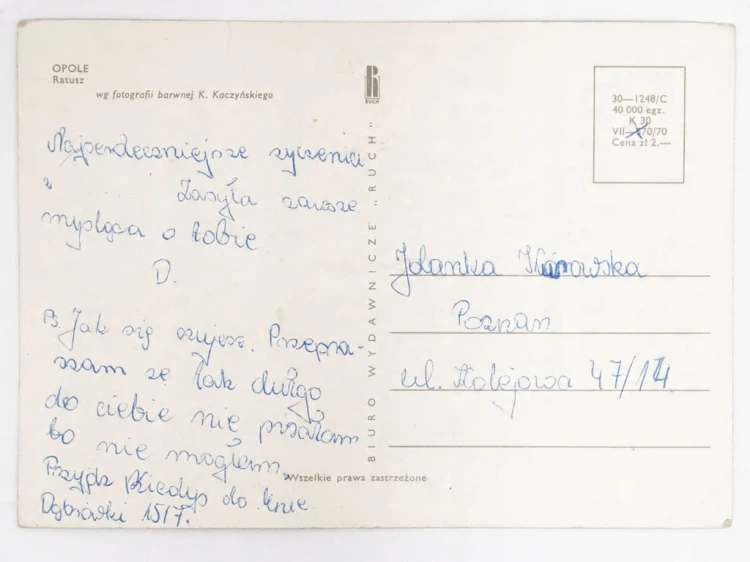 OPOLE
Ratusz
wg fotografii barwnej K. Kaczyńskiego
RUCH
30—1248/C
40 000 egz.
K 30
VII—70/70
Cena zł 2.—
Najserdeczniejsze zyczenia
z Zasyła zawsze
myśląca o tobie
D.
Jak się czujesz. Przepra-
szam ze tak długo
do ciebie nie pisałam
bo nie mogłam.
Przyjdz kiedyś do mnie
Dąbrówki 15/7.
BIURO WYDAWNICZE „RUCH"
Jolanka
Poznan
ul. Kolejowa 47/14
Wszelkie prawa zastrzeżone